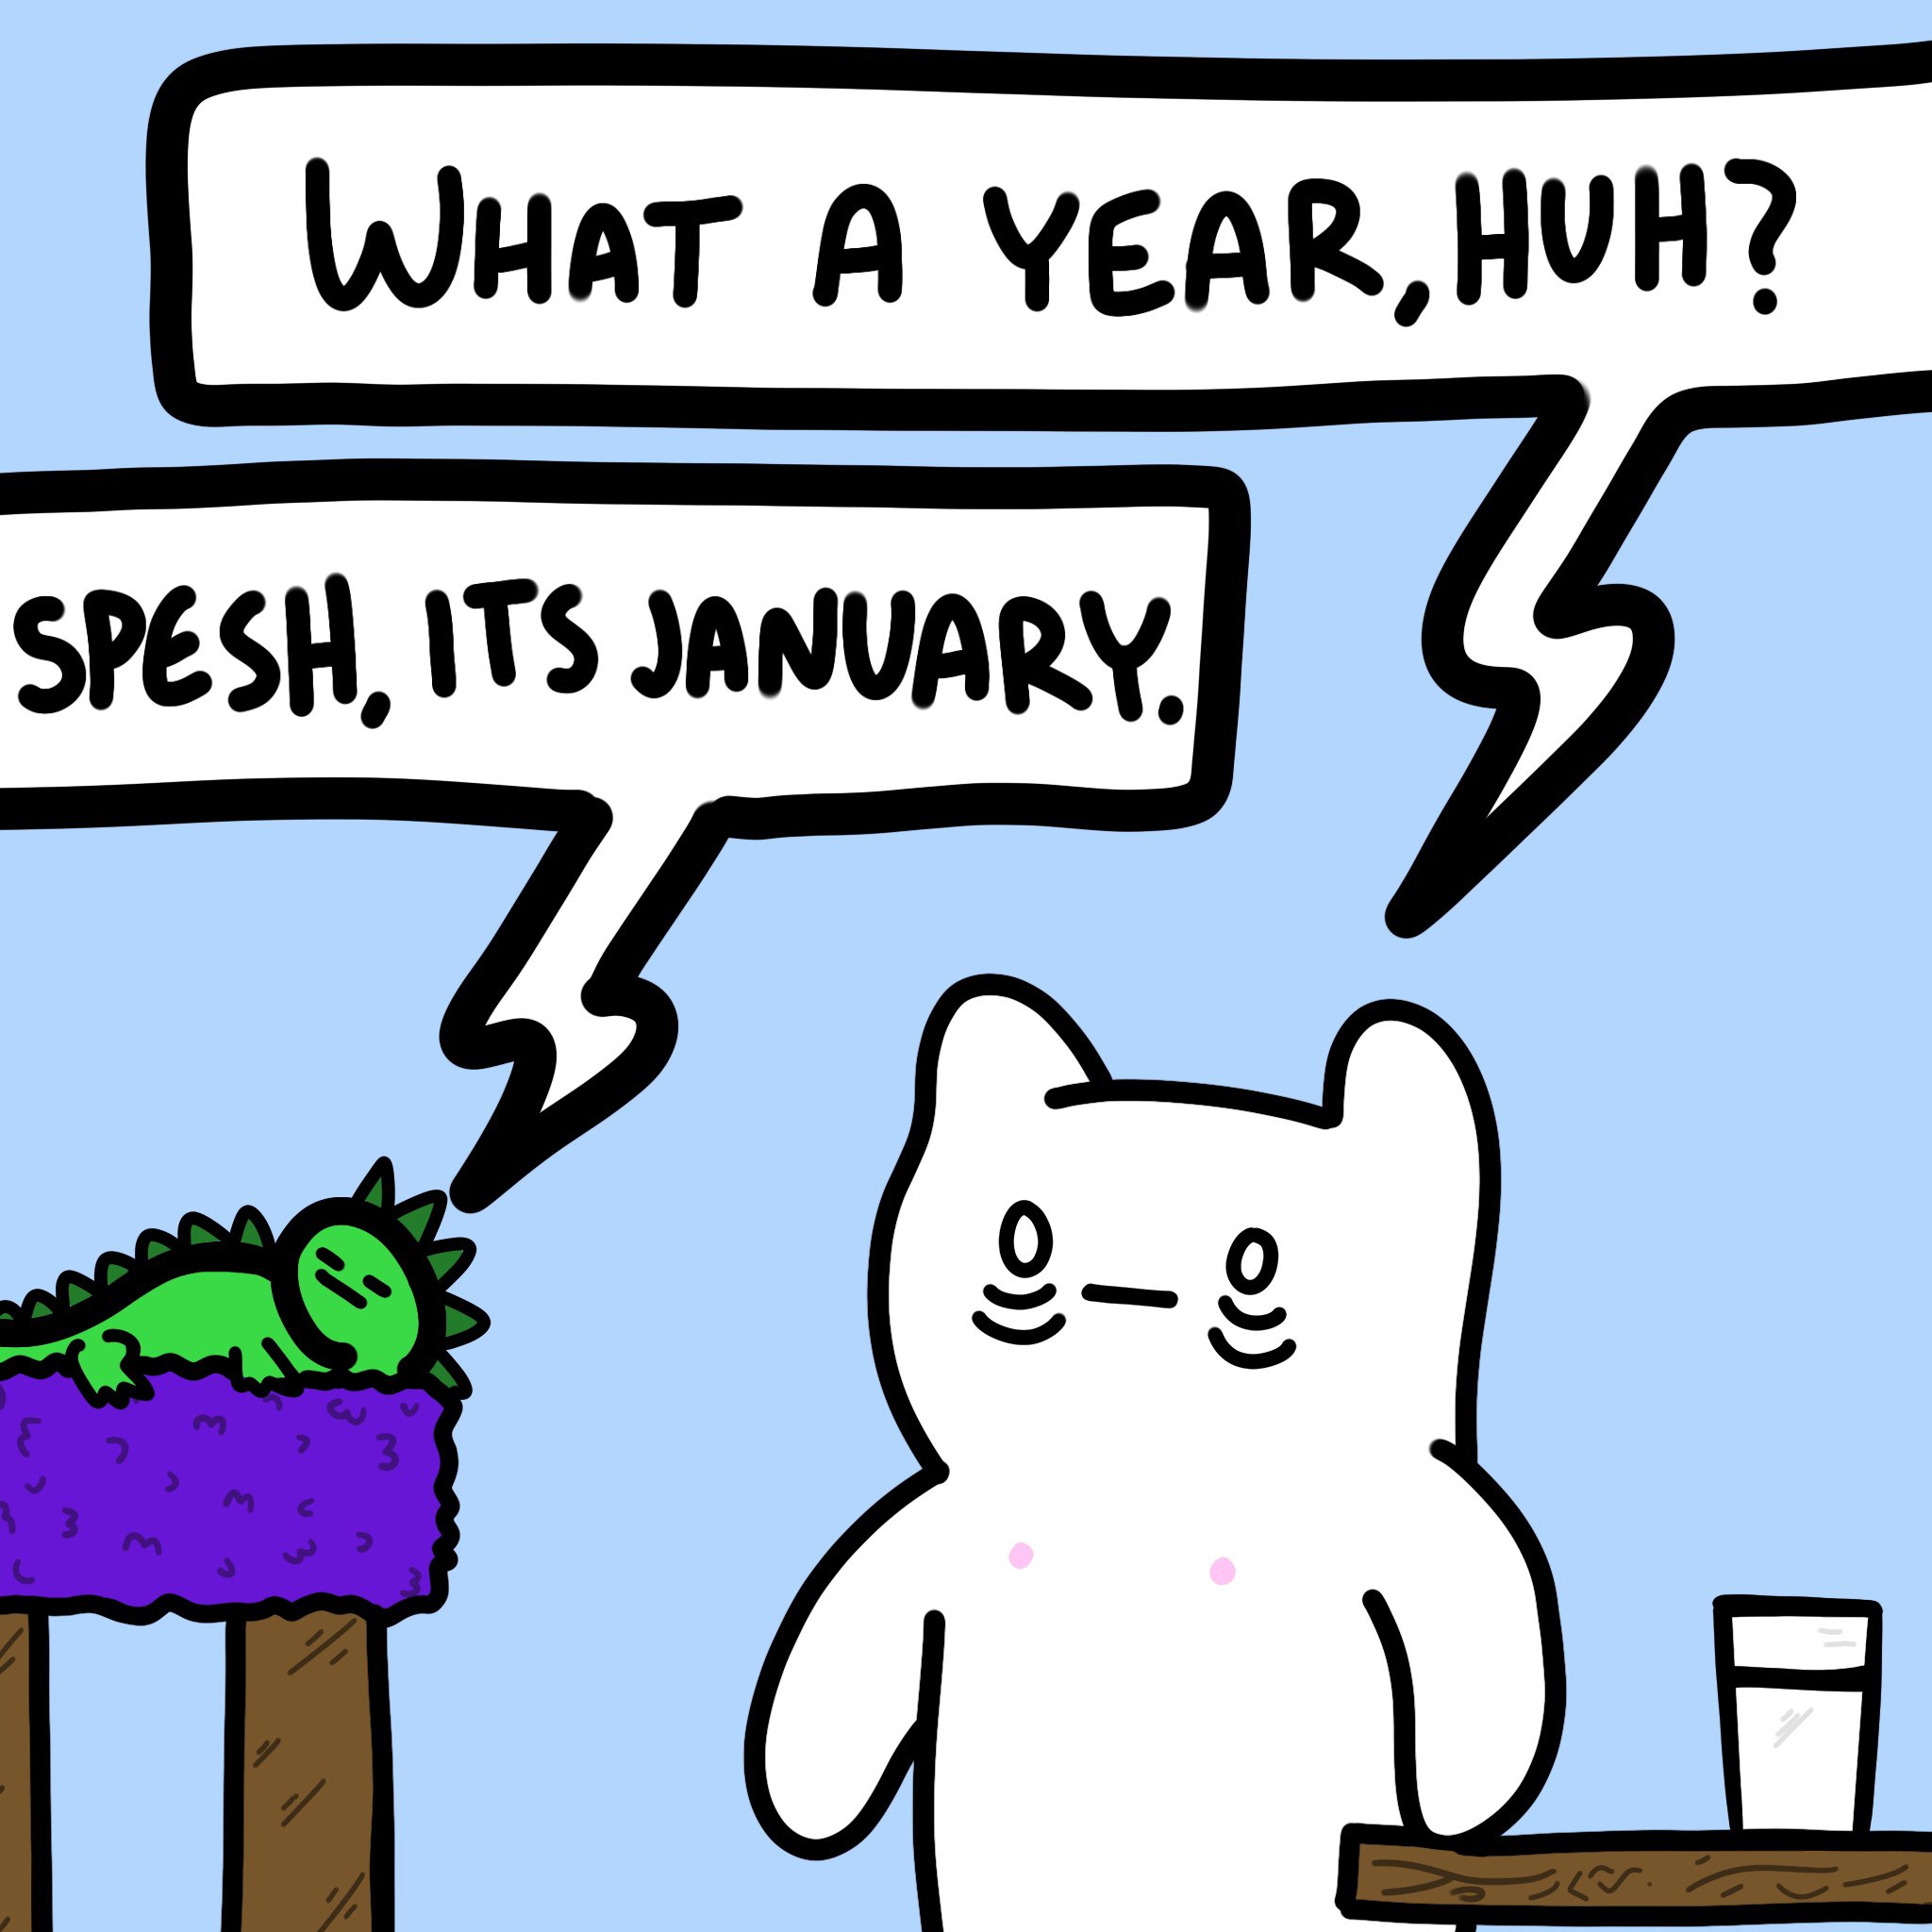 WHAT A YEAR, HUH?
SPESH, ITS JANUARY.